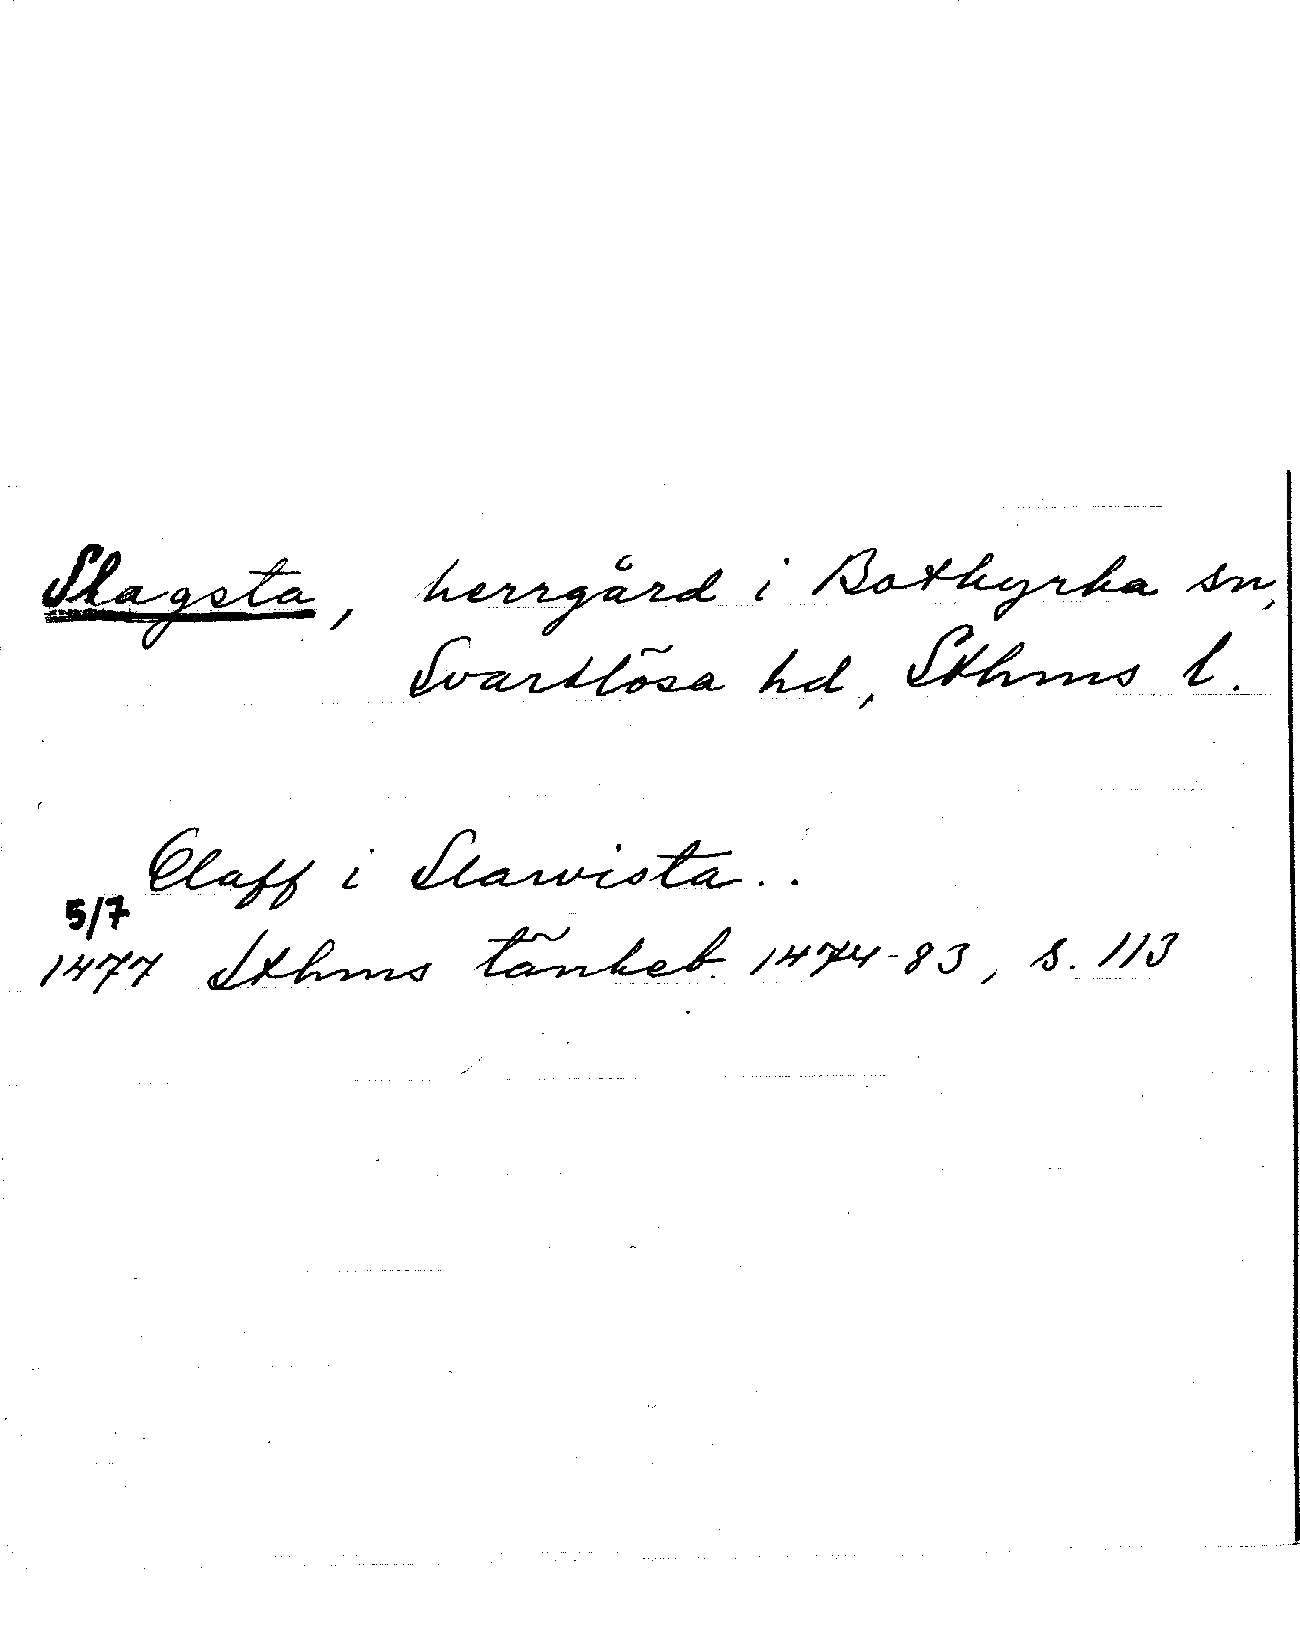 Slagsta, herrgård i Botkyrka sn,
Svartlösa hd, Sthms l.
Olaff i Slawista..
5/7
1477 Sthms tänkeb. 1474-83, s. 113